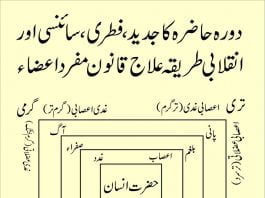 دورہ حاضرہ کا جدید، فطری، سائنسی اور
انقلابی طریقہ علاج قانون مفرد اعضاء
تری
اعصابی غدی (تر گرم)
غدی اعصابی (گرم تر)
گرمی
پانی
آگ
بلغم
صفراء
اعصاب
غدد
حضرت انسان
اعصابی عضلاتی (تر سرد)